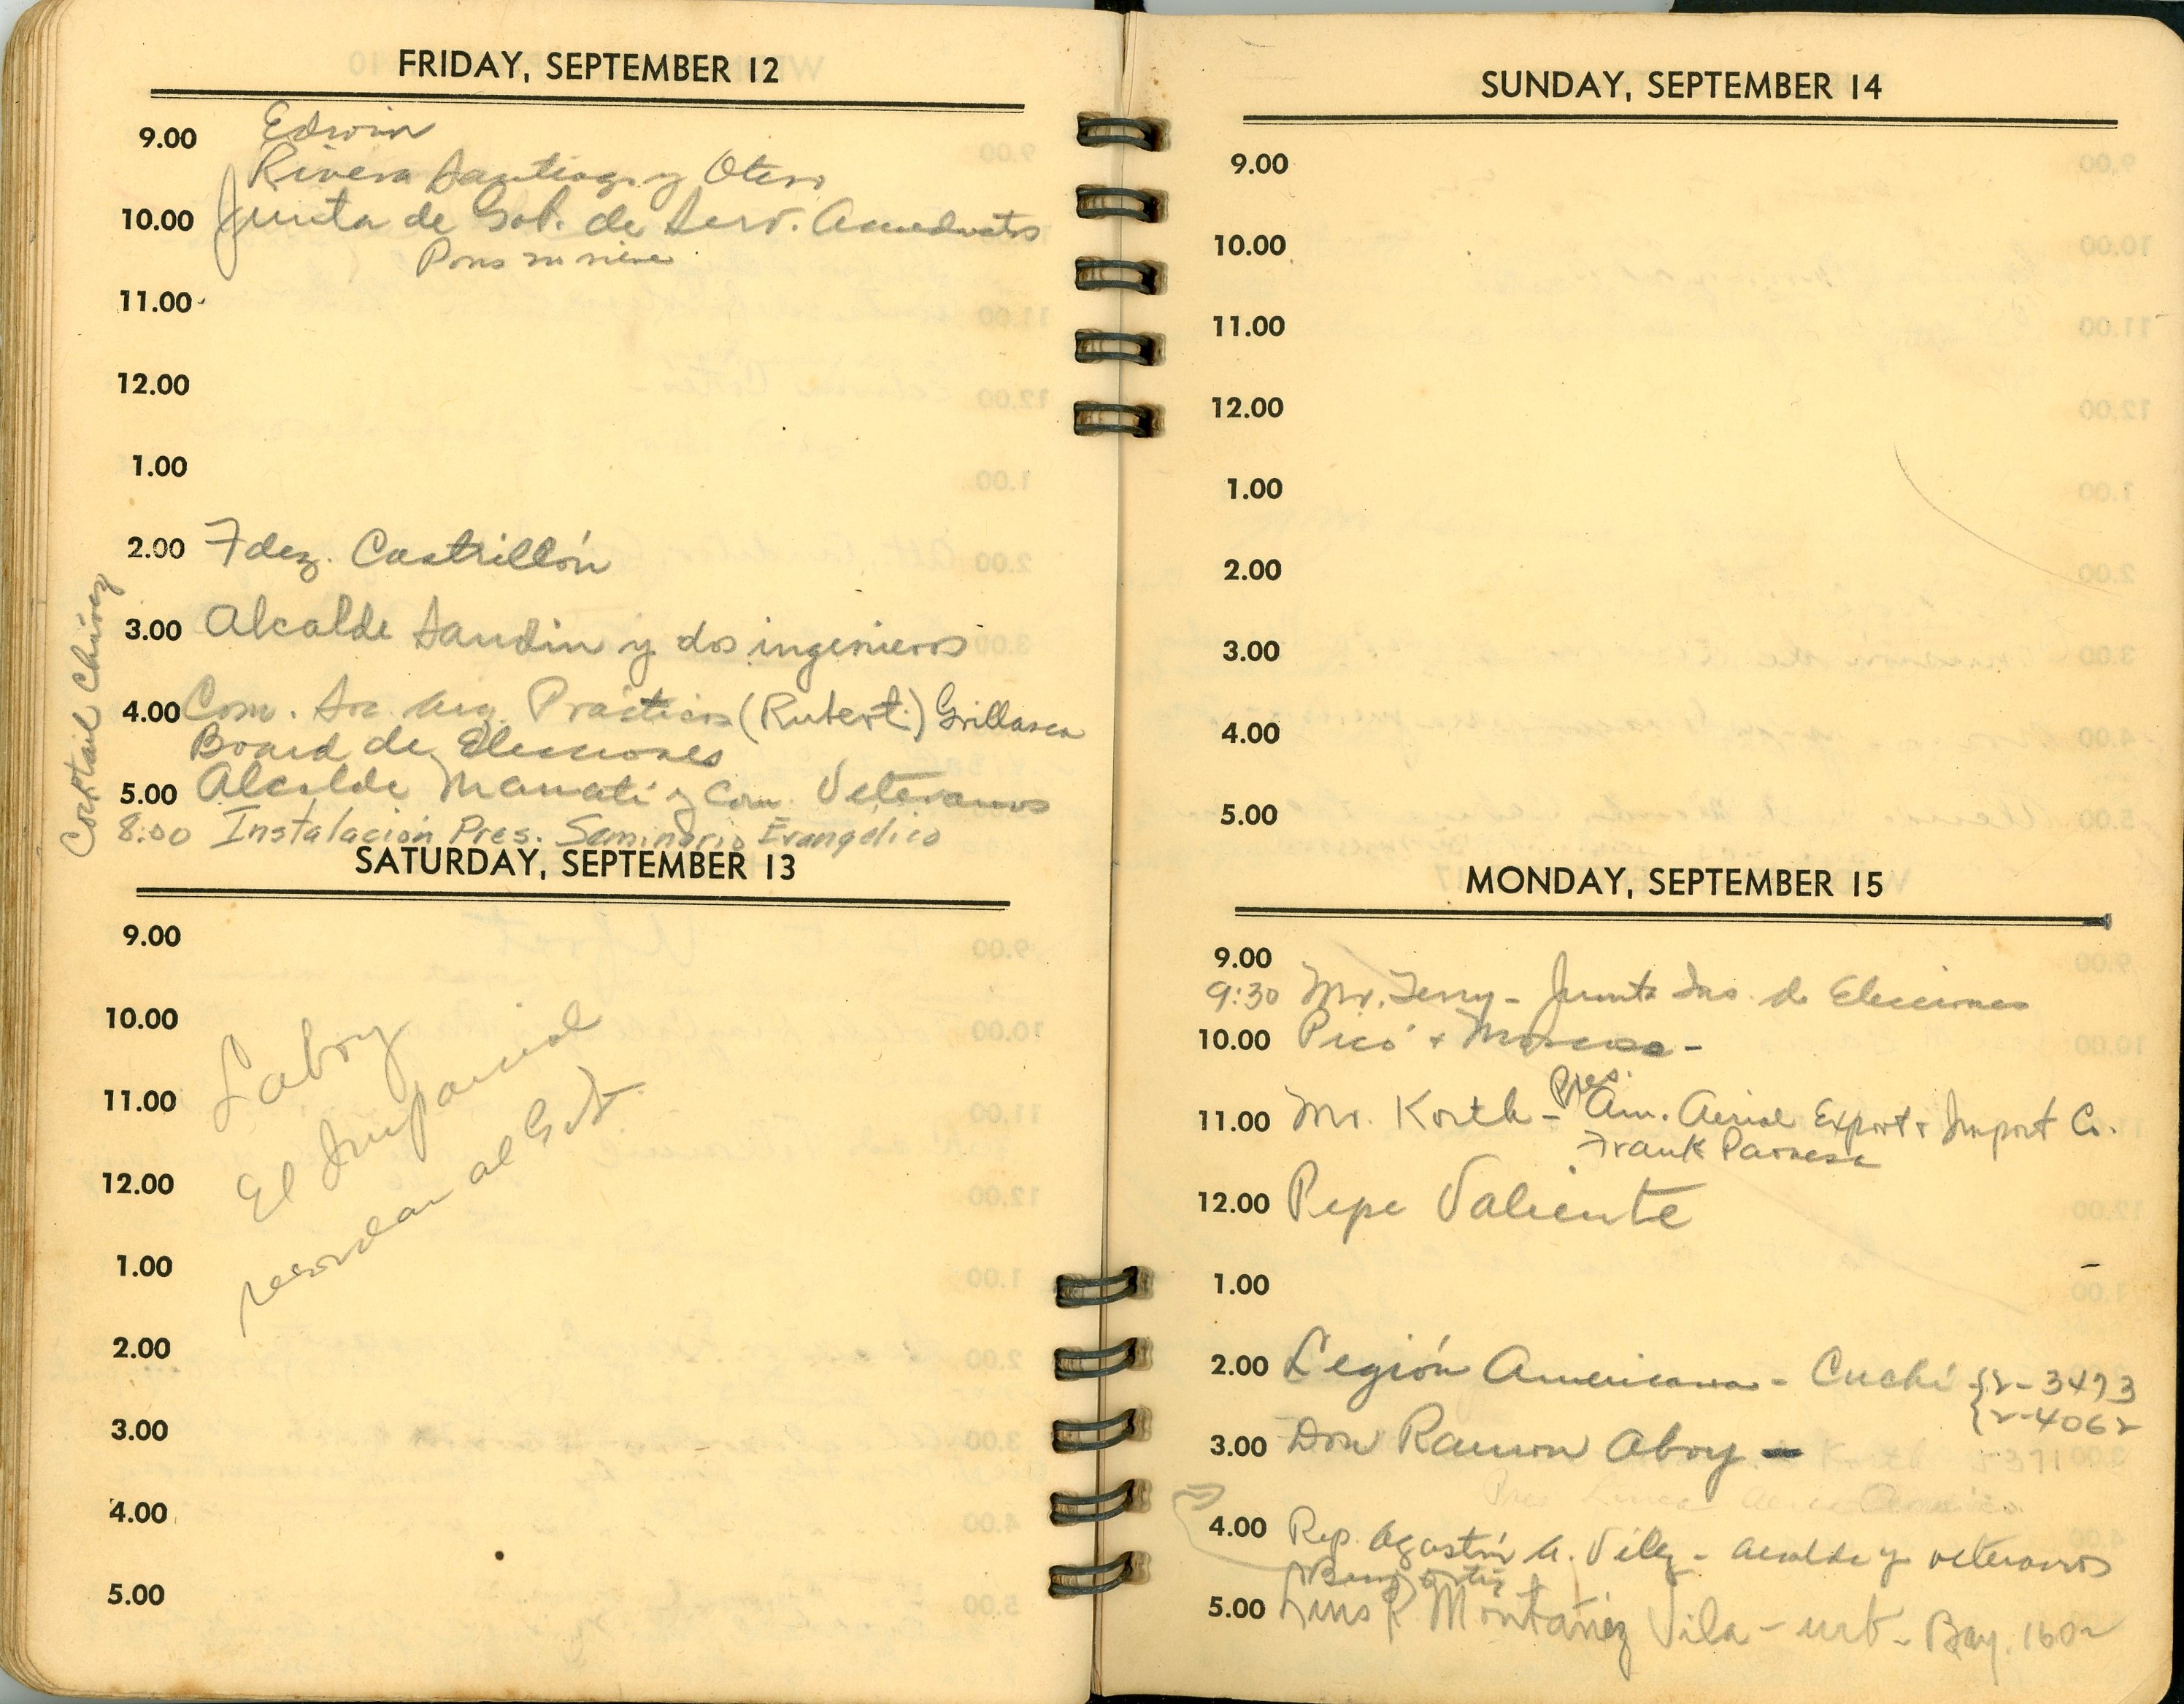 FRIDAY, SEPTEMBER 12
9.00 Edwin
Rivera Santiago y Otero
10.00 Junta de Gob. de Serv.
Pons no viene
11.00
12.00
1.00
2.00 Fdez. Castrillón
3.00 Alcalde Sandin y dos ingenieros
4.00 Com. Prácticos (Rubert) Grillasca
Board de Elecciones
5.00 Alcalde Manatí y Com. Veteranos
8:00 Instalación Pres. Seminario Evangélico
Cocktail Chávez
SATURDAY, SEPTEMBER 13
9.00
10.00
11.00
12.00
1.00
2.00
3.00
4.00
5.00
Laboy
El Imparcial
recordar al
SUNDAY, SEPTEMBER 14
9.00
10.00
11.00
12.00
1.00
2.00
3.00
4.00
5.00
MONDAY, SEPTEMBER 15
9.00
9:30 Mr. Terry - Junta Ins. de Elecciones
10.00 Picó + Moscoso -
Pres.
11.00 Mr. Korth - Am. Aerial Export & Import Co.
Frank
12.00 Pepe Valiente
1.00
2.00 Legión Americana - Cuchí { 2-3473
{ 2-4062
3.00 Don Ramon Aboy -
4.00 Rep. Agustín A. Vélez - alcalde y veteranos
Benj. Ortiz
5.00 Luis R Montañez Vila - urb - Bay. 1602